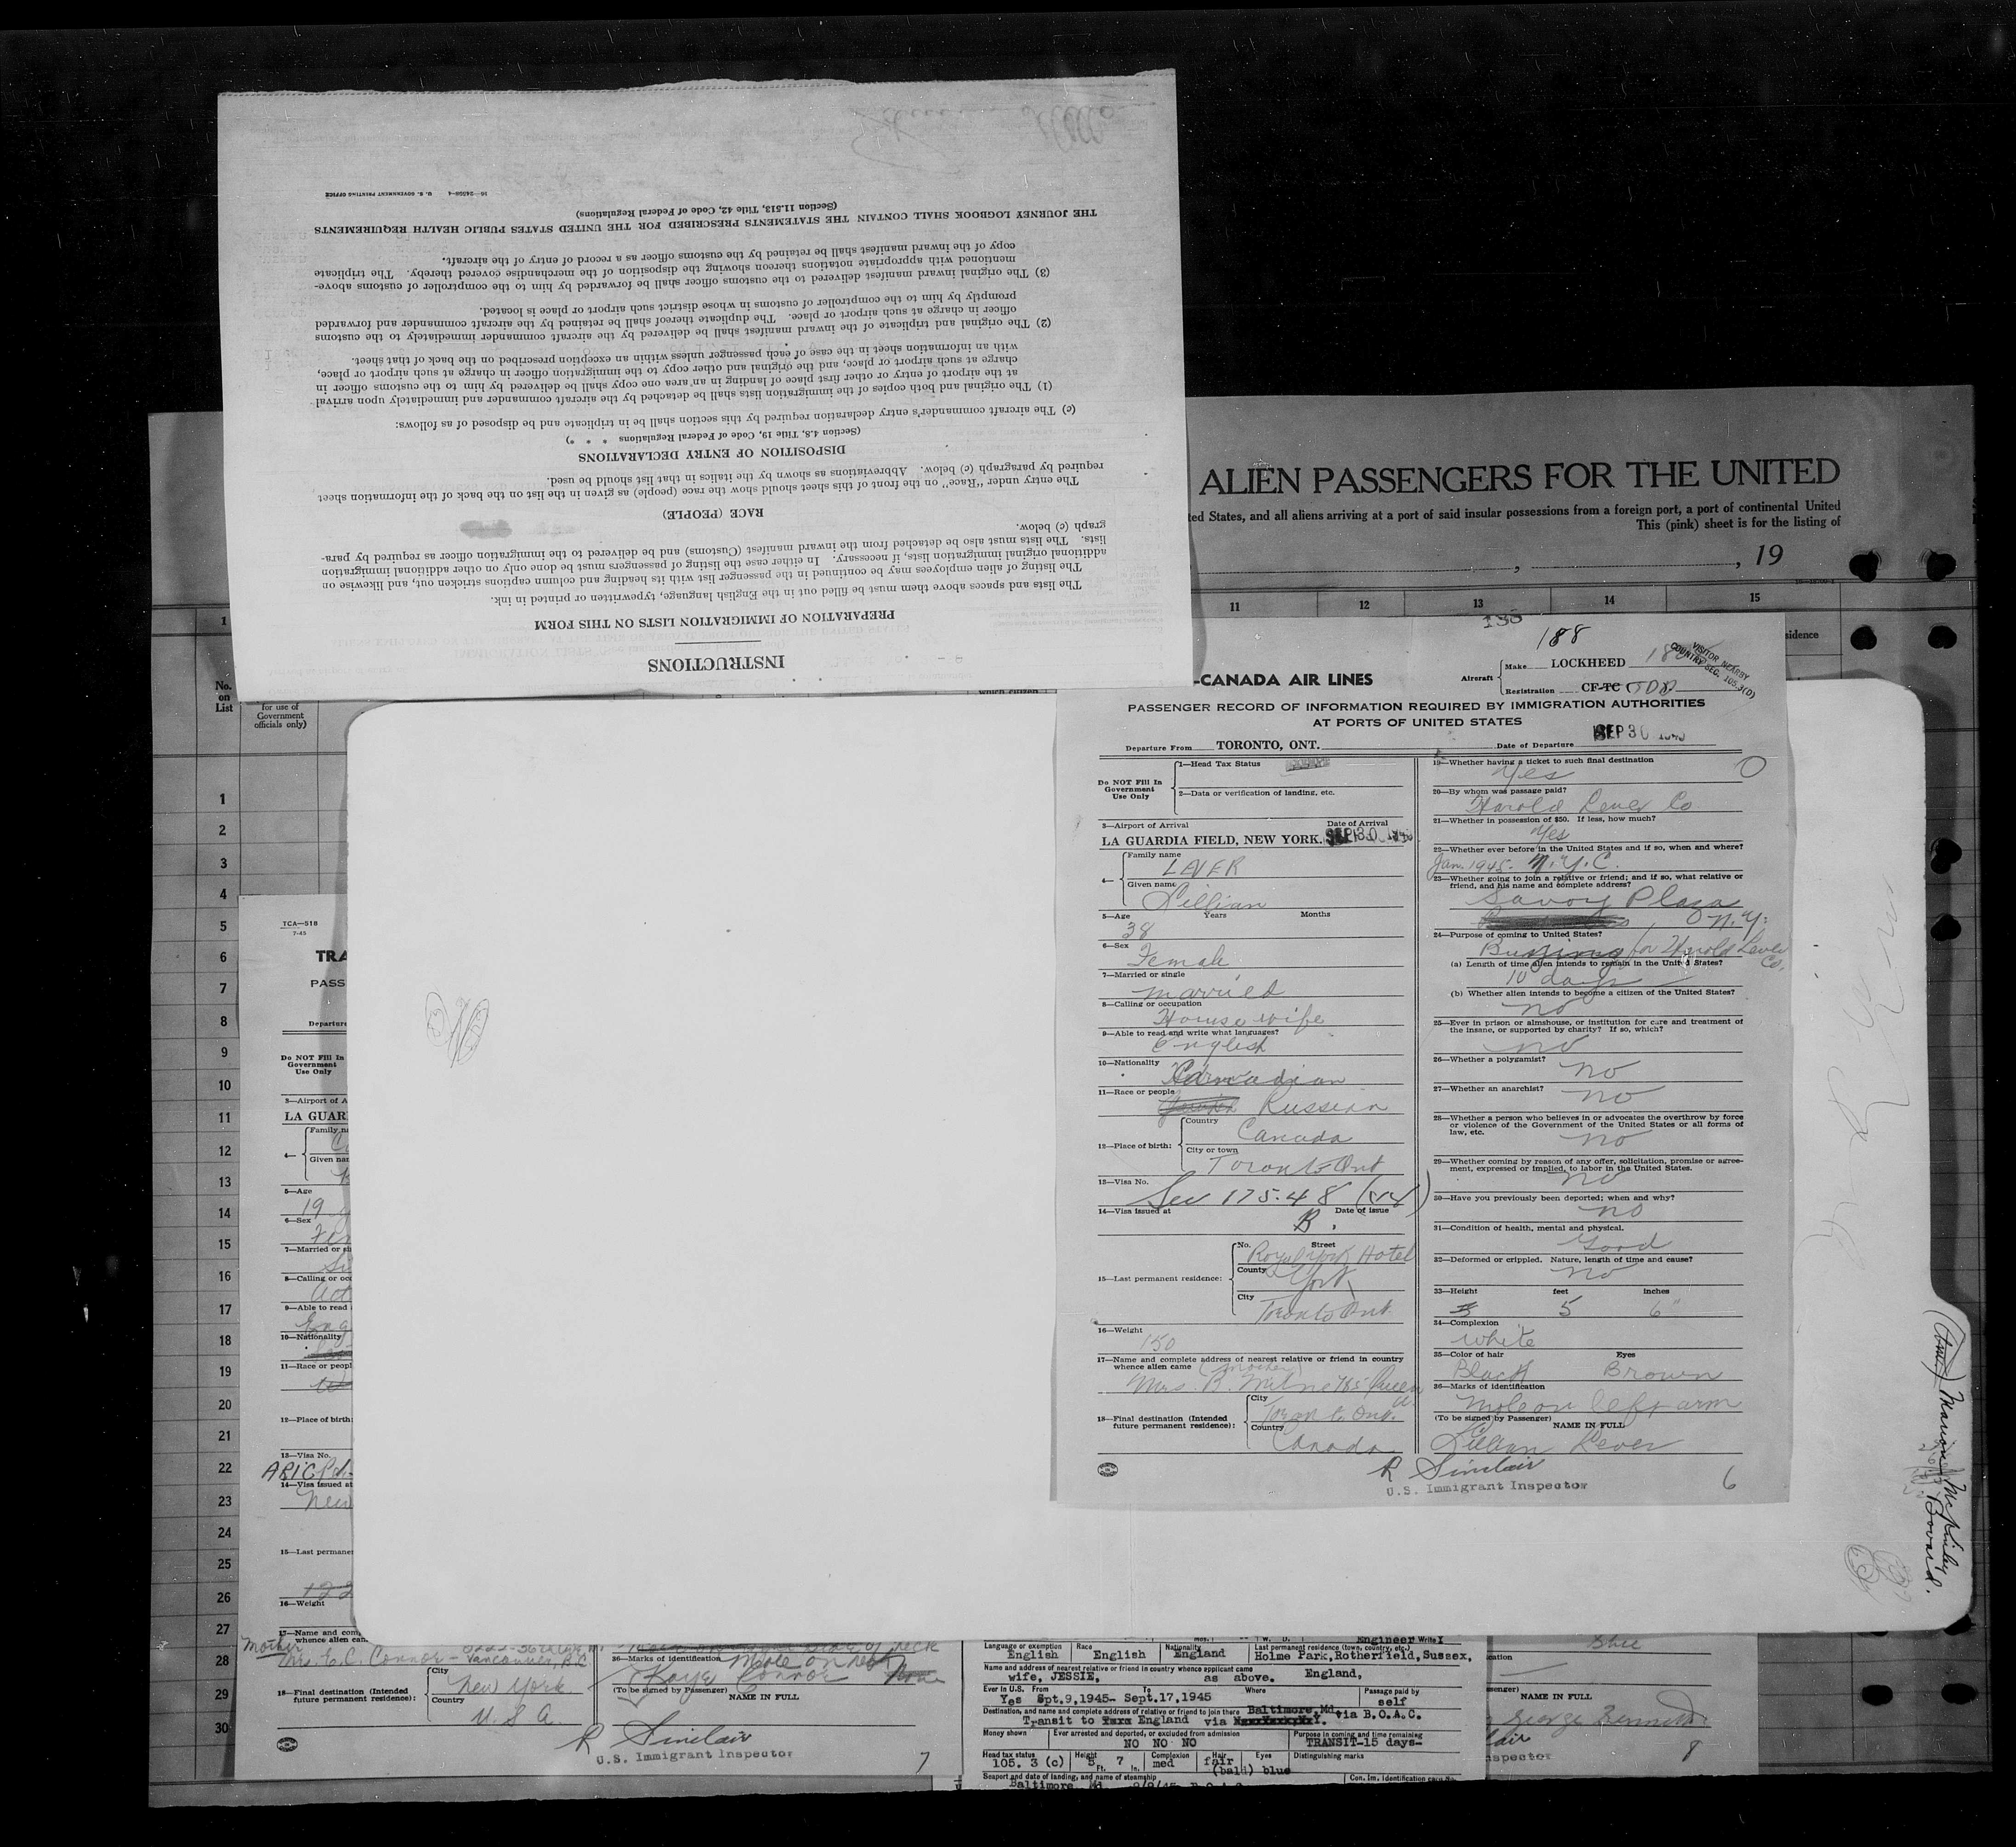 16—24596-4 U. S. GOVERNMENT PRINTING OFFICE
INSTRUCTIONS
PREPARATION OF IMMIGRATION LISTS ON THIS FORM
The lists and spaces above them must be filled out in the English language, typewritten or printed in ink.
The listing of alien employees may be continued in the passenger list with its heading and column captions stricken out, and likewise on
additional original immigration lists, if necessary. In either case the listing of passengers must be done only on other additional immigration
lists. The lists must also be detached from the inward manifest (Customs) and be delivered to the immigration officer as required by para-
graph (c) below.
RACE (PEOPLE)
The entry under "Race" on the front of this sheet should show the race (people) as given in the list on the back of the information sheet
required by paragraph (c) below. Abbreviations as shown by the italics in that list should be used.
DISPOSITION OF ENTRY DECLARATIONS
(Section 4.8, Title 19, Code of Federal Regulations * * *)
(c) The aircraft commander's entry declaration required by this section shall be in triplicate and be disposed of as follows:
(1) The original and both copies of the immigration lists shall be detached by the aircraft commander and immediately upon arrival
at the airport of entry or other first place of landing in an area one copy shall be delivered by him to the customs officer in
charge at such airport or place, and the original and other copy to the immigration officer in charge at such airport or place,
with an information sheet in the case of each passenger unless within an exception prescribed on the back of that sheet.
(2) The original and triplicate of the inward manifest shall be delivered by the aircraft commander immediately to the customs
officer in charge at such airport or place. The duplicate thereof shall be retained by the aircraft commander and forwarded
promptly by him to the comptroller of customs in whose district such airport or place is located.
(3) The original inward manifest delivered to the customs officer shall be forwarded by him to the comptroller of customs above-
mentioned with appropriate notations thereon showing the disposition of the merchandise covered thereby. The triplicate
copy of the inward manifest shall be retained by the customs officer as a record of entry of the aircraft.
THE JOURNEY LOGBOOK SHALL CONTAIN THE STATEMENTS PRESCRIBED FOR THE UNITED STATES PUBLIC HEALTH REQUIREMENTS
(Section 11.513, Title 42, Code of Federal Regulations)
ALIEN PASSENGERS FOR THE UNITED
ted States, and all aliens arriving at a port of said insular possessions from a foreign port, a port of continental United
This (pink) sheet is for the listing of
, , 19
1 11 12 13 14 15
No. on List
for use of Government officials only)
sidence
1
2
3
4
5
6
7
8
9
10
11
12
13
14
15
16
17
18
19
20
21
22
23
24
25
26
27
28
29
30
188
-CANADA AIR LINES
Aircraft Make LOCKHEED
Registration CF-TC TDD
VISITOR NEARBY
COUNTRY SEC. 105.3(D)
PASSENGER RECORD OF INFORMATION REQUIRED BY IMMIGRATION AUTHORITIES
AT PORTS OF UNITED STATES
Departure From TORONTO, ONT. Date of Departure SEP 30
Do NOT Fill In Government Use Only
1—Head Tax Status
2—Data or verification of landing, etc.
3—Airport of Arrival Date of Arrival
LA GUARDIA FIELD, NEW YORK. SEP 30
4— Family name LEVER
Given name Lillian
5—Age Years Months
38
6—Sex
Female
7—Married or single
married
8—Calling or occupation
Housewife
9—Able to read and write what languages?
English
10—Nationality
Canadian
11—Race or people
Russian
12—Place of birth: Country Canada
City or town Toronto Ont
13—Visa No.
Sec 175.48
14—Visa issued at Date of issue
B.
15—Last permanent residence: No. Street
Royal York Hotel
County York
City Toronto Ont.
16—Weight
150
17—Name and complete address of nearest relative or friend in country
whence alien came (mother)
Mrs. B. Milne 785 Queen
18—Final destination (Intended
future permanent residence): City Toronto Ont.
Country Canada
19—Whether having a ticket to such final destination
Yes
20—By whom was passage paid?
Harold Lever Co
21—Whether in possession of $50. If less, how much?
Yes
22—Whether ever before in the United States and if so, when and where?
Jan. 1945 - N.Y.C.
23—Whether going to join a relative or friend; and if so, what relative or
friend, and his name and complete address?
Savoy Plaza
N.Y.
24—Purpose of coming to United States?
Buying for Harold Lever Co.
(a) Length of time alien intends to remain in the United States?
10 days
(b) Whether alien intends to become a citizen of the United States?
no
25—Ever in prison or almshouse, or institution for care and treatment of
the insane, or supported by charity? If so, which?
no
26—Whether a polygamist?
no
27—Whether an anarchist?
no
28—Whether a person who believes in or advocates the overthrow by force
or violence of the Government of the United States or all forms of
law, etc.
no
29—Whether coming by reason of any offer, solicitation, promise or agree-
ment, expressed or implied, to labor in the United States.
no
30—Have you previously been deported; when and why?
no
31—Condition of health, mental and physical.
Good
32—Deformed or crippled. Nature, length of time and cause?
no
33—Height feet inches
5 6"
34—Complexion
white
35—Color of hair Eyes
Black Brown
36—Marks of identification
Mole on left arm
(To be signed by Passenger) NAME IN FULL
Lillian Lever
R Sinclair
U.S. Immigrant Inspector
6
TCA—518
7-45
TRA
PASS
Departure
Do NOT Fill In Government Use Only
3—Airport of A
LA GUAR
4— Family na
Given nam
5—Age
19
6—Sex
7—Married or si
8—Calling or occ
9—Able to read
Eng
10—Nationality
11—Race or peopl
12—Place of birth:
13—Visa No.
14—Visa issued at
New
15—Last permane
16—Weight
17—Name and com
whence alien cam
Mother
Mrs. C.C. Connor - Vancouver, B.C.
18—Final destination (Intended
future permanent residence): City New York
Country U.S.A.
36—Marks of identification Mole on neck
Kaye Connor
(To be signed by Passenger) NAME IN FULL
R Sinclair
U.S. Immigrant Inspector
7
Engineer Write I
Language or exemption English Race English Nationality England Last permanent residence (town, country, etc.)
Holme Park, Rotherfield, Sussex,
Name and address of nearest relative or friend in country whence applicant came England,
wife, JESSIE, as above.
Ever in U.S. From To Where Passage paid by
Yes Spt.9,1945- Sept.17,1945 self
Destination, and name and complete address of relative or friend to join there Baltimore, Md. via B.O.A.C.
Transit to England via
Money shown Ever arrested and deported, or excluded from admission Purpose in coming and time remaining
NO NO NO TRANSIT-15 days-
Head tax status Height Complexion Hair Eyes Distinguishing marks
105. 3 (c) 5 Ft. 7 In. med fair (bald) blue
Seaport and date of landing, and name of steamship
Baltimore, Md.
NAME IN FULL
George Bennett
8
Marion McKinley
Bovaird.